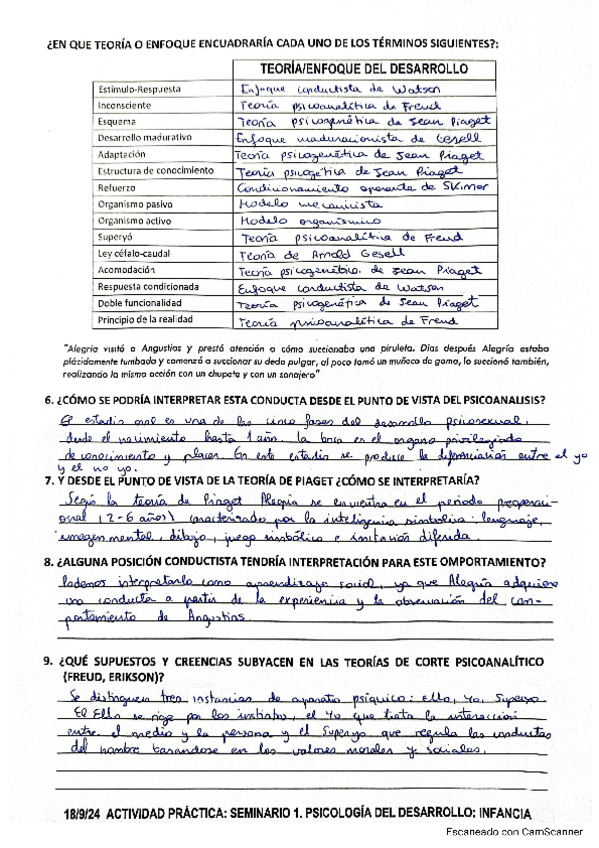 ¿EN QUE TEORÍA O ENFOQUE ENCUADRARÍA CADA UNO DE LOS TÉRMINOS SIGUIENTES?:
TEORÍA/ENFOQUE DEL DESARROLLO
Estímulo-Respuesta Enfoque conductista de Watson
Inconsciente Teoría psicoanalítica de Freud
Esquema Teoría psicogenética de Jean Piaget
Desarrollo madurativo Enfoque maduracionista de Gesell
Adaptación Teoría psicogenética de Jean Piaget
Estructura de conocimiento Teoría psicogética de Jean Piaget
Refuerzo Condicionamiento operante de Skinner
Organismo pasivo Modelo mecanicista
Organismo activo Modelo organísmico
Superyó Teoría psicoanalítica de Freud
Ley céfalo-caudal Teoría de Arnold Gesell
Acomodación Teoría psicogenética de Jean Piaget
Respuesta condicionada Enfoque conductista de Watson
Doble funcionalidad Teoría psicogenética de Jean Piaget
Principio de la realidad Teoría psicoanalítica de Freud
"Alegría visitó a Angustias y prestó atención a cómo succionaba una piruleta. Días después Alegría estaba
plácidamente tumbada y comenzó a succionar su dedo pulgar, al poco tomó un muñeco de goma, lo succionó también,
realizando la misma acción con un chupete y con un sonajero"
6. ¿CÓMO SE PODRÍA INTERPRETAR ESTA CONDUCTA DESDE EL PUNTO DE VISTA DEL PSICOANALISIS?
El estadio oral es una de las cinco fases del desarrollo psicosexual,
desde el nacimiento hasta 1 año. La boca es el organo privilegiado
de conocimiento y placer. En este estadio se produce la diferenciación entre el yo
y el no yo.
7. Y DESDE EL PUNTO DE VISTA DE LA TEORÍA DE PIAGET ¿CÓMO SE INTERPRETARÍA?
Según la teoría de Piaget Alegría se encuentra en el periodo preoperaci-
onal (2-6 años) caracterizado por la inteligencia simbólica: lenguaje,
imagen mental, dibujo, juego simbólico e imitación diferida.
8. ¿ALGUNA POSICIÓN CONDUCTISTA TENDRÍA INTERPRETACIÓN PARA ESTE OMPORTAMIENTO?
Podemos interpretarlo como aprendizaje social, ya que Alegría adquiere
una conducta a partir de la experiencia y la observación del com-
portamiento de Angustias.
9. ¿QUÉ SUPUESTOS Y CREENCIAS SUBYACEN EN LAS TEORÍAS DE CORTE PSICOANALÍTICO
(FREUD, ERIKSON)?
Se distinguen tres instancias de aparato psíquico: Ello, Yo, Superyo
El Ello se rige por los instintos, el Yo que trata la interacción
entre el medio y la persona y el Superyo que regula las conductas
del hombre basandose en los valores morales y sociales.
18/9/24 ACTIVIDAD PRÁCTICA: SEMINARIO 1. PSICOLOGÍA DEL DESARROLLO: INFANCIA
Escaneado con CamScanner